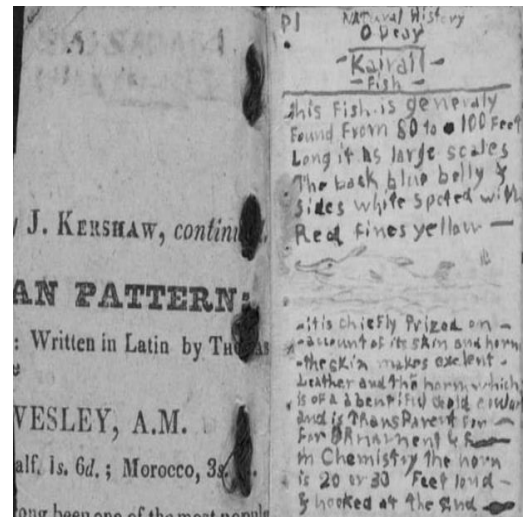 J. KERSHAW, continued.
AN PATTERN:
: Written in Latin by THOMAS
WESLEY, A.M.
alf. 1s. 6d.; Morocco, 3s.
long been one of the most popula
P1
NATural History
Kairail
Fish
this Fish is generaly
Found From 80 to 100 Feet
Long it hs large scales
The back blue belly &
Sides white spoted with
Red fines yellow —
it is chiefly Prized on
account of its skin and horn
the skin makes exelent
Leather and the horn which
is of a
and is TransParent for
For ORnarnent &
in Chemistry the horn
is 20 or 30 Feet lond
& hooked at the End